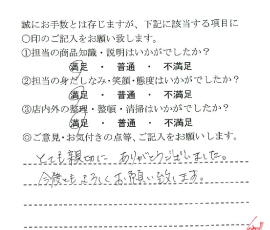 誠にお手数とは存じますが、下記に該当する項目に
○印のご記入をお願い致します。
①担当の商品知識・説明はいかがでしたか?
満足 ・ 普通 ・ 不満足
②担当の身だしなみ・笑顔・態度はいかがでしたか?
満足 ・ 普通 ・ 不満足
③店内外の整理・整頓・清掃はいかがでしたか?
満足 ・ 普通 ・ 不満足
◎ご意見・お気付きの点等、ご記入をお願いします。
とても親切に ありがとうございました。
今後ともよろしくお願い致します。